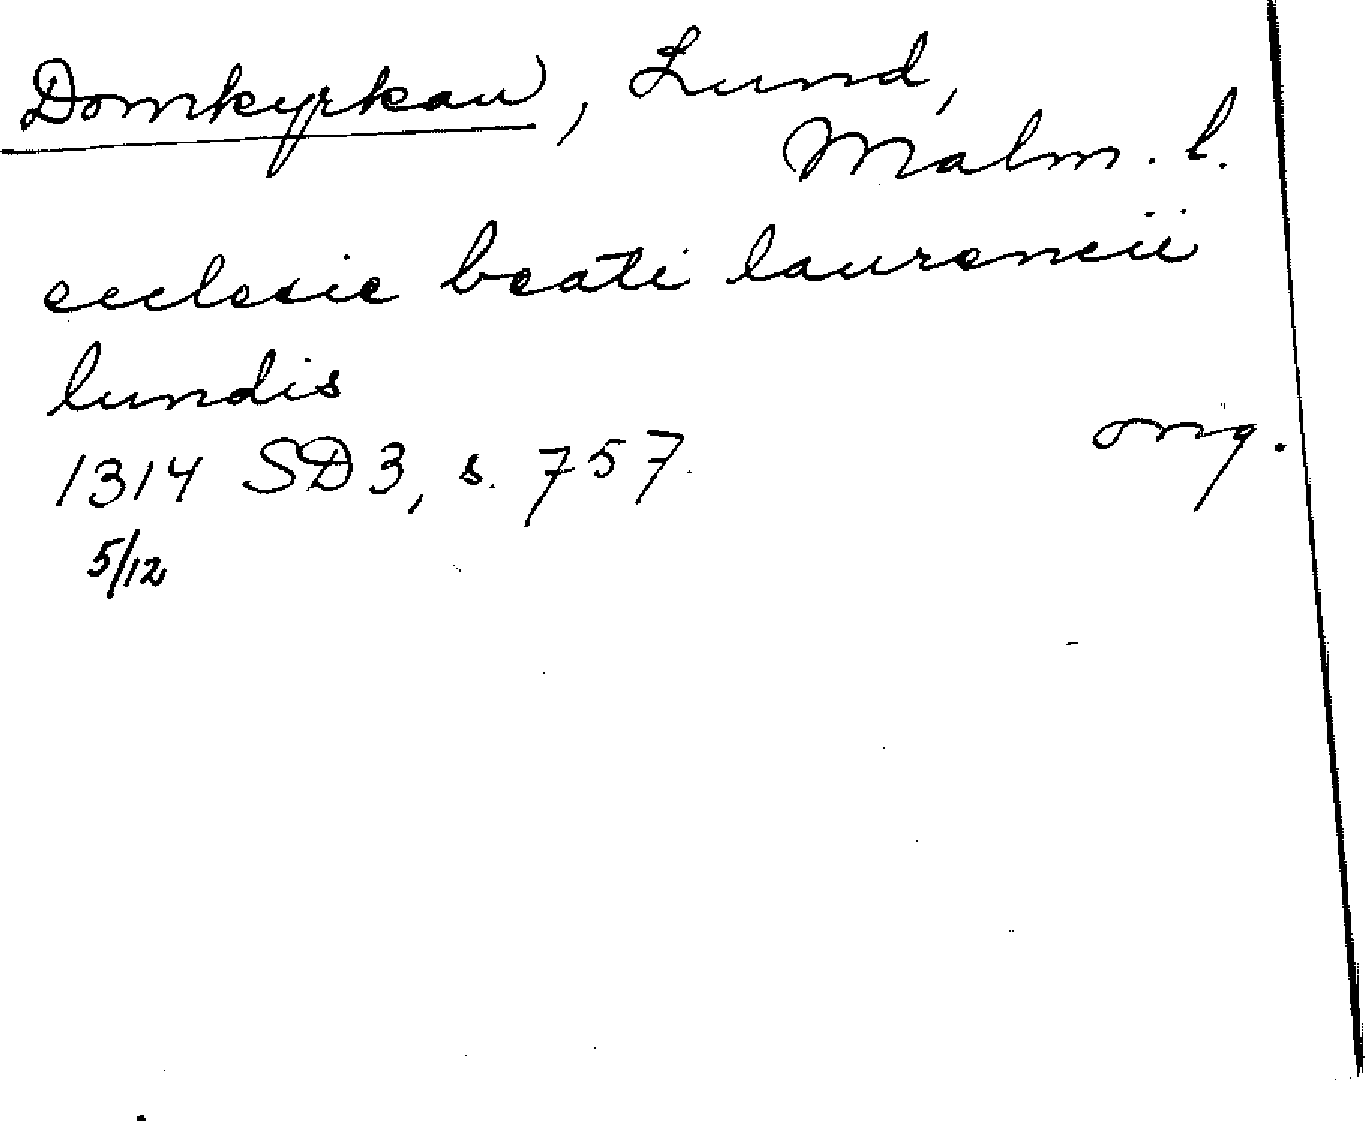 Domkyrkan, Lund,
Malm. l.
ecclesie beati laurencii
lundis
1314 SD3, s. 757. orig.
5/12